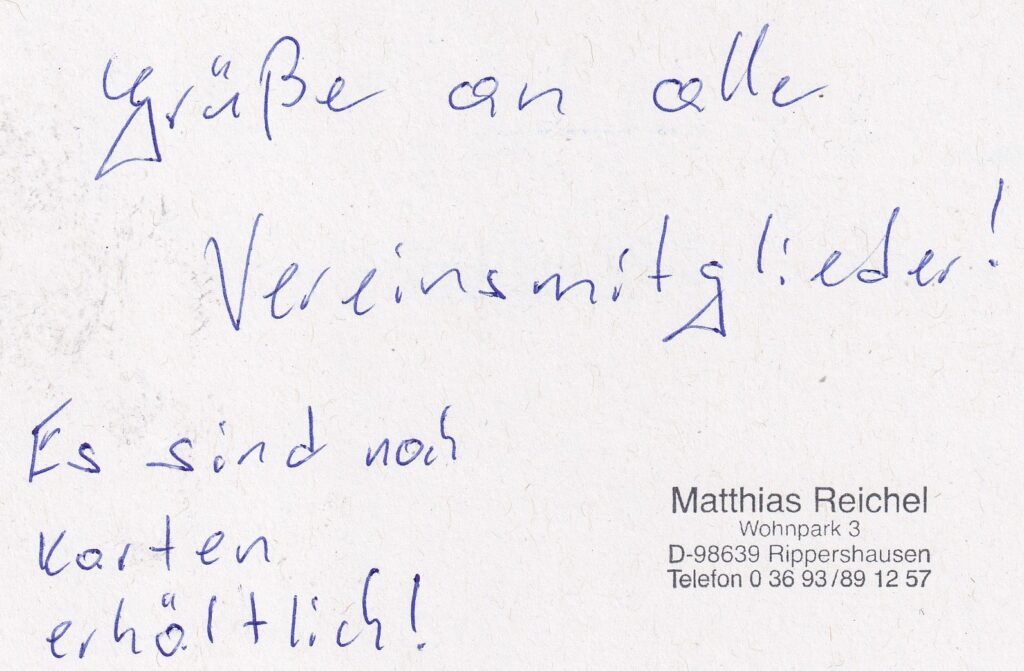 Grüße an alle
Vereinsmitglieder!
Es sind noch
Karten
erhältlich!
Matthias Reichel
Wohnpark 3
D-98639 Rippershausen
Telefon 0 36 93/89 12 57